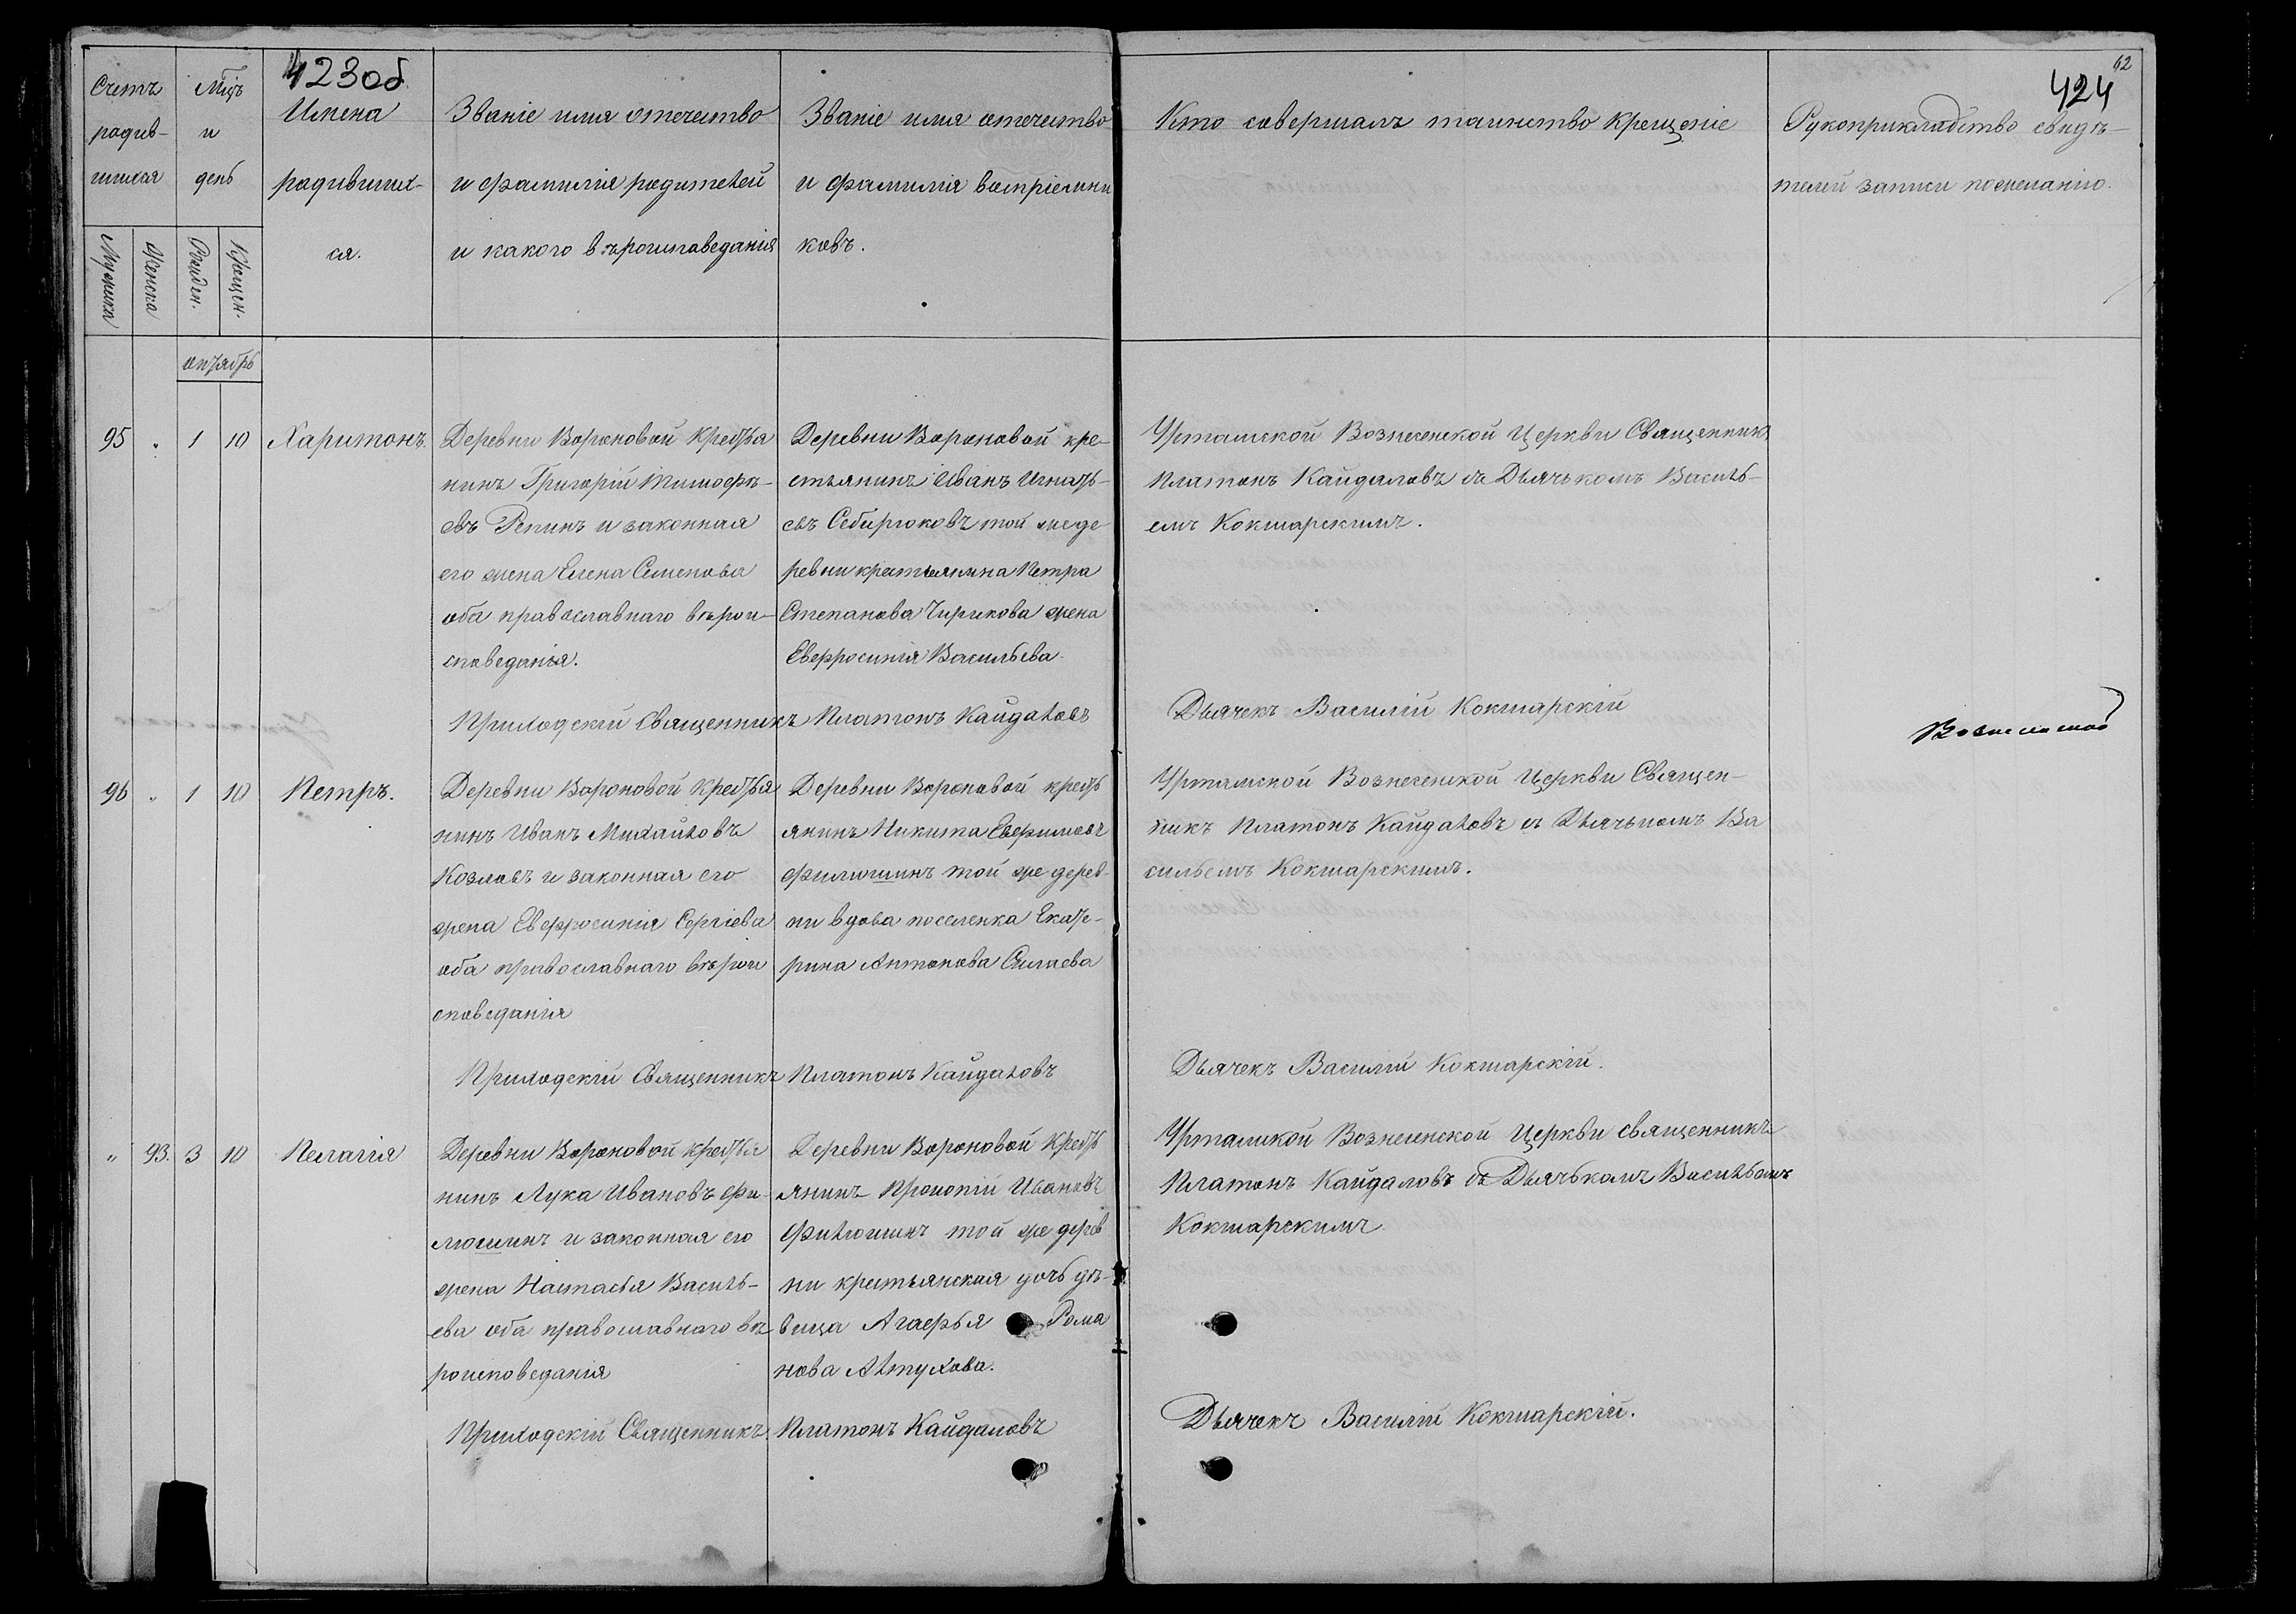 423об.
424
62
Счетъ
родив-
шихся
Мужска
Женска
Мцъ
и
день
Рожден.
Крещен.
Имена
родивших-
ся.
Званіе имя отечество
и фамилія родителей
и какого вѣроисповеданія
Званіе имя отечество
и фамилія воспріемни
ковъ.
Кто совершалъ таинство крещеніе
Рукоприкладство свидѣ-
телей записи пожеланію.
октябрь
95 " 1 10 Харитонъ.
Деревни Вороновой крестья
нинъ Григорій Тимофѣ-
евъ Репинъ и законная
его жена Елена Семенова
оба православнаго вѣрои-
споведанія.
Деревни Вороновой кре-
стьянинъ Иванъ Игнать-
евъ Себирюковъ той же де
ревни крестьянина Петра
Степанова Чирикова жена
Евфросинія Васильева.
Уртамской Вознесенской Церкви Священникъ
Платонъ Кайдаловъ съ Дьячькомъ Василь-
емъ Кокшарскимъ.
Приходскій Священникъ Платонъ Кайдаловъ
Дьячекъ Василій Кокшарскій
96 " 1 10 Петръ.
Деревни Вороновой крестья
нинъ Иванъ Михайловъ
Козловъ и законная его
жена Евфросинія Сергіева
оба православнаго вѣрои
споведанія
Деревни Вороновой кресть
янинъ Никита Евфимовъ
Филюшинъ той же дерев-
ни вдова поселенка Екате-
рина Антонова
Уртамской Вознесенской Церкви Священ-
никъ Платонъ Кайдаловъ съ Дьячькомъ Ва
сильемъ Кокшарскимъ.
Приходскій Священникъ Платонъ Кайдаловъ
Дьячекъ Василій Кокшарскій.
" 93. 3 10 Пелагія
Деревни Вороновой крестья
нинъ Лука Ивановъ Фи-
люшинъ и законная его
жена Настасья Василь-
ева оба православнаго вѣ
роисповеданія
Деревни Вороновой кресть
янинъ Прокопій Ивановъ
Филюшинъ той же дерев
ни крестьянская дочь дѣ-
вица Агафья Рома
нова Алтухова.
Уртамской Вознесенской Церкви священникъ
Платонъ Кайдаловъ съ Дьячькомъ Васильемъ
Кокшарскимъ
Приходскій Священникъ Платонъ Кайдаловъ
Дьячекъ Василій Кокшарскій.